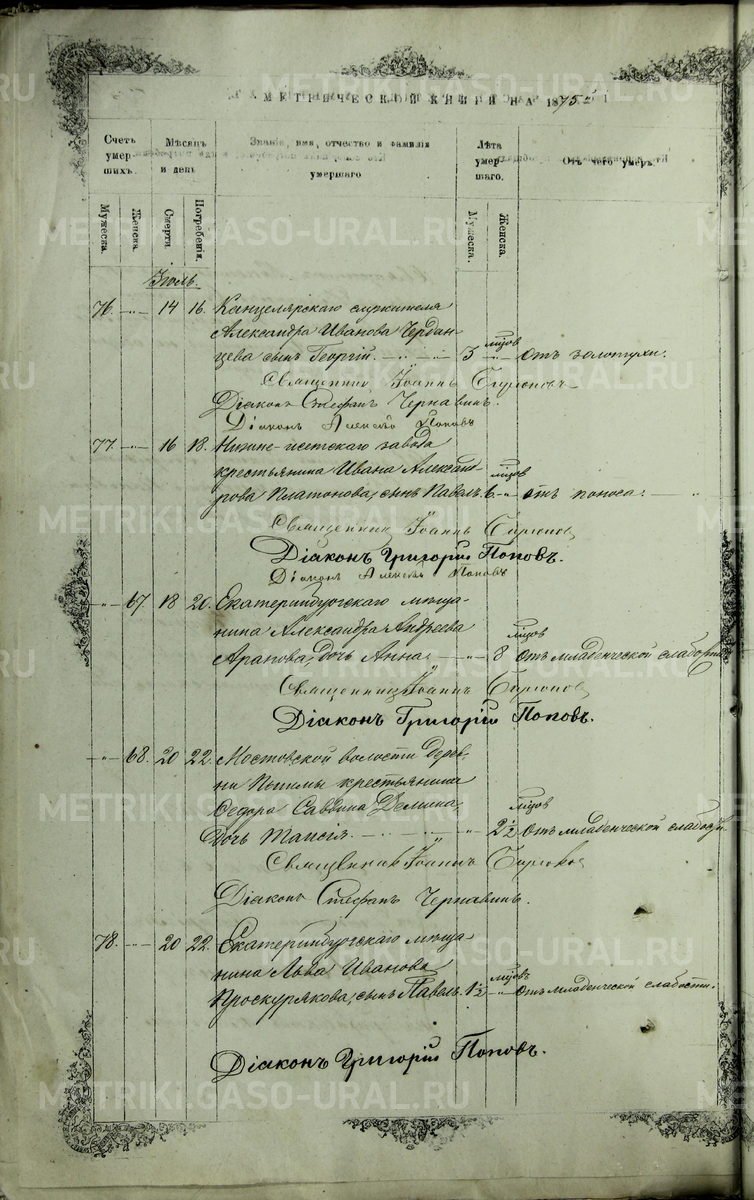 МЕТРИЧЕСКОЙ КНИГИ НА 1875 г.
Счетъ умершихъ.
Мужеска.
Женска.
Мѣсяцъ и день
Смерти.
Погребенія.
Званіе, имя, отчество и фамилія умершаго
Лѣта умершаго.
Мужеска.
Женска.
Отъ чего умеръ.
Іюль.
76. 14 16. Канцелярскаго служителя
Александра Иванова Чердан-
цева сынъ Георгій. 3 мѣсяцов отъ золотухи.
Священникъ Іоаннъ
Діаконъ Стефанъ Чернавинъ.
Діаконъ Алексѣй Поповъ
77. 16 18. Нижне-исетскаго завода
крестьянина Ивана Александ-
рова Платонова, сынъ Павелъ. 6 мѣсяцов отъ поноса.
Священникъ Іоаннъ
Діаконъ Григорій Поповъ.
Діаконъ Алексѣй Поповъ
67 18 20. Екатеринбургскаго мѣща-
нина Александра Андреева
Арапова, дочь Анна. 8 мѣсяцов отъ младенческой слабости
Священникъ Іоаннъ
Діаконъ Григорій Поповъ.
68. 20 22. Мостовской волости дерев-
ни крестьянина
Ѳедора Саввина Демина,
дочь Таисія. 2½ мѣсяцов отъ младенческой слабости.
Священникъ Іоаннъ
Діаконъ Стефанъ Чернавинъ.
78. 20 22. Екатеринбургскаго мѣща-
нина Льва Иванова
Проскурякова, сынъ Павелъ. 1½ мѣсяцов отъ младенческой слабости.
Діаконъ Григорій Поповъ.
METRIKI.GASO-URAL.RU